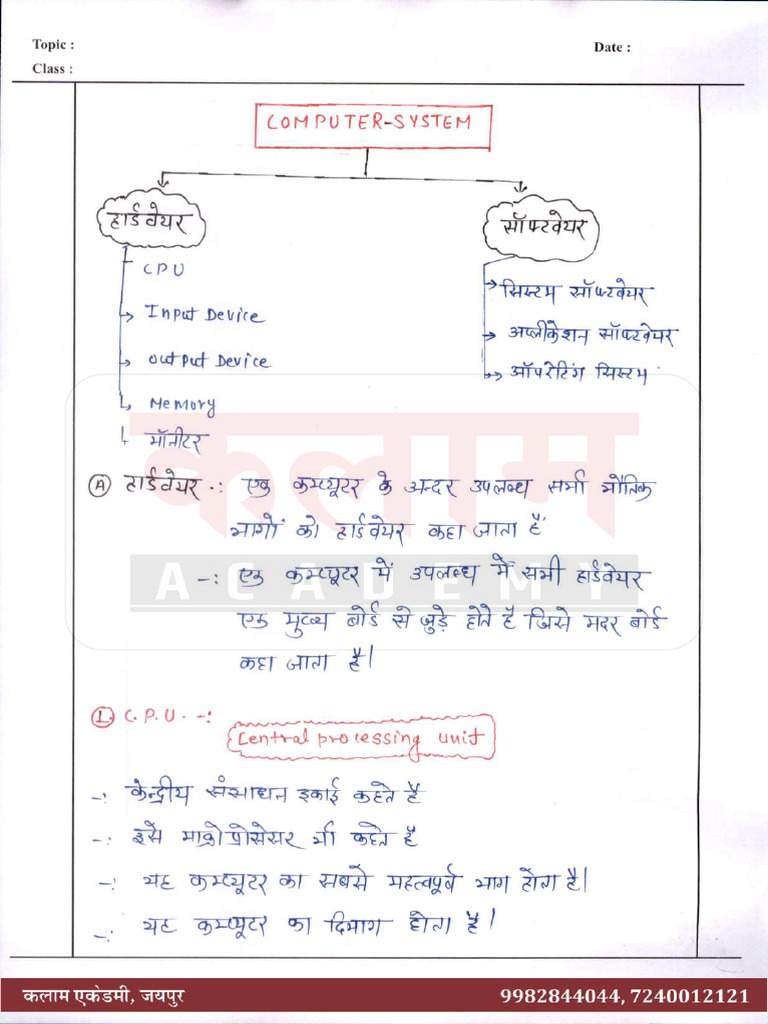 Topic :
Date :
Class :
COMPUTER-SYSTEM
हार्डवेयर
सॉफ्टवेयर
CPU
Input Device
output Device
Memory
मॉनीटर
सिस्टम सॉफ्टवेयर
अप्लीकेशन सॉफ्टवेयर
ऑपरेटिंग सिस्टम
कलाम
ACADEMY
(A) हार्डवेयर -: एक कम्प्यूटर के अन्दर उपलब्ध सभी भौतिक
भागों को हार्डवेयर कहा जाता है
-: एक कम्प्यूटर में उपलब्ध में सभी हार्डवेयर
एक मुख्य बोर्ड से जुड़े होते है जिसे मदर बोर्ड
कहा जाता है।
(1.) C.P.U. -:
Central processing unit
-: केन्द्रीय संसाधन इकाई कहते है
-: इसे माक्रोप्रोसेसर भी कहते है
-: यह कम्प्यूटर का सबसे महत्वपूर्ण भाग होता है।
-: यह कम्प्यूटर का दिमाग होता है।
कलाम एकेडमी, जयपुर
9982844044, 7240012121